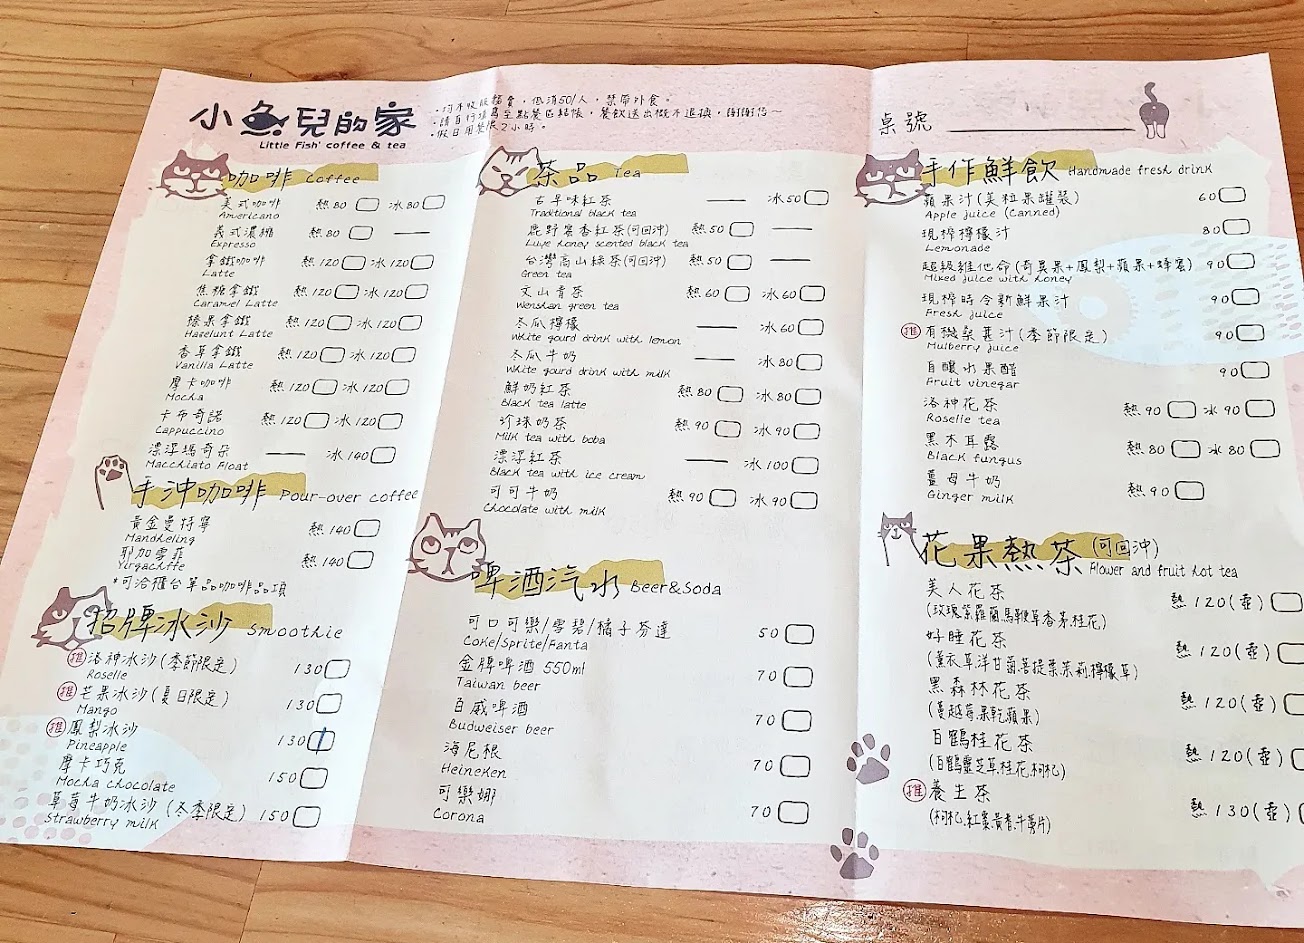 小魚兒的家
Little Fish' coffee & tea
·均不收服務費，低消50/人，禁帶外食。
·請自行填寫至點餐區結帳，餐飲送出概不退換，謝謝您～
·假日用餐限2小時。
桌號
咖啡 Coffee
美式咖啡 熱80 冰80
Americano
義式濃縮 熱80
Expresso
拿鐵咖啡 熱120 冰120
Latte
焦糖拿鐵 熱120 冰120
Caramel Latte
榛果拿鐵 熱120 冰120
Hazelunt Latte
香草拿鐵 熱120 冰120
Vanilla Latte
摩卡咖啡 熱120 冰120
Mocha
卡布奇諾 熱120 冰120
Cappuccino
漂浮瑪奇朵 冰140
Macchiato Float
手沖咖啡 Pour-over coffee
黃金曼特寧 熱140
Mandheling
耶加雪菲 熱140
Yirgachffe
*可洽櫃台單品咖啡品項
招牌冰沙 Smoothie
推 洛神冰沙(季節限定) 130
Roselle
推 芒果冰沙(夏日限定) 130
Mango
推 鳳梨冰沙 130
Pineapple
摩卡巧克 150
Mocha chocolate
草莓牛奶冰沙(冬季限定) 150
Strawberry milk
茶品 Tea
古早味紅茶 冰50
Traditional black tea
鹿野蜜香紅茶(可回沖) 熱50
Luye honey scented black tea
台灣高山綠茶(可回沖) 熱50
Green tea
文山青茶 熱60 冰60
Wenshan green tea
冬瓜檸檬 冰60
White gourd drink with lemon
冬瓜牛奶 冰80
White gourd drink with milk
鮮奶紅茶 熱80 冰80
Black tea latte
珍珠奶茶 熱90 冰90
Milk tea with boba
漂浮紅茶 冰100
Black tea with ice cream
可可牛奶 熱90 冰90
Chocolate with milk
啤酒汽水 Beer&Soda
可口可樂/雪碧/橘子芬達 50
Coke/Sprite/Fanta
金牌啤酒 550ml 70
Taiwan beer
百威啤酒 70
Budweiser beer
海尼根 70
Heineken
可樂娜 70
Corona
手作鮮飲 Handmade fresh drink
蘋果汁(美粒果罐裝) 60
Apple juice (Canned)
現榨檸檬汁 80
Lemonade
超級維他命(奇異果+鳳梨+蘋果+蜂蜜) 90
Mixed juice with honey
現榨時令新鮮果汁 90
Fresh juice
推 有機桑葚汁(季節限定) 90
Mulberry juice
自釀水果醋 90
Fruit vinegar
洛神花茶 熱90 冰90
Roselle tea
黑木耳露 熱80 冰80
Black fungus
薑母牛奶 熱90
Ginger milk
花果熱茶(可回沖)
Flower and fruit hot tea
美人花茶 熱120(壺)
(玫瑰.紫羅蘭.馬鞭草.香茅.桂花)
好睡花茶 熱120(壺)
(薰衣草.洋甘菊.菩提葉.茉莉.檸檬草)
黑森林花茶 熱120(壺)
(蔓越莓.果乾.蘋果)
白鶴桂花茶 熱120(壺)
(白鶴靈芝草.桂花.枸杞)
推 養生茶 熱130(壺)
(枸杞.紅棗.黃耆.牛蒡片)